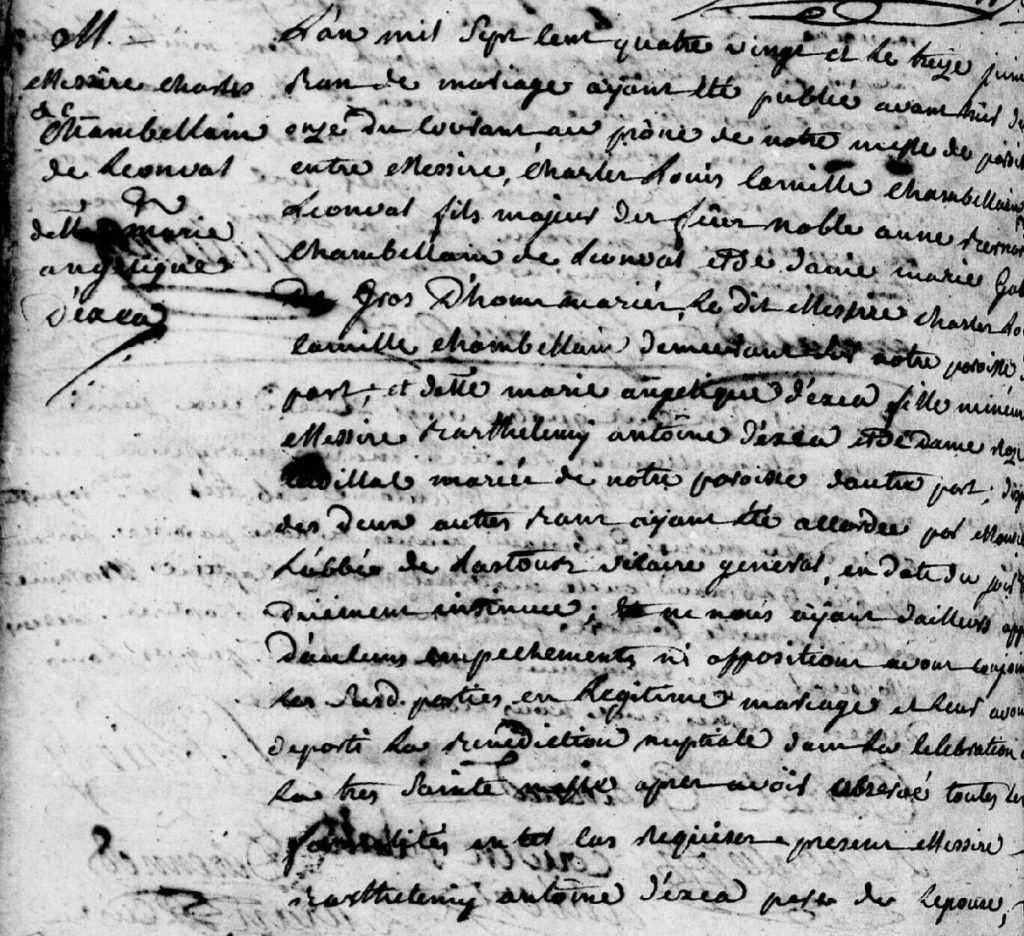 M.
Messire charles
de
Chambellain
de Leonval
&
delle marie
angelique
d'exea
L'an mil sept cent quatre vingt et le treize juin
ban de mariage ayant été publié avant hier
onze du courant au prône de notre messe de
entre Messire, Charles Louis Camille Chambellain
Leonval fils majeur de feu noble anne Bernard
Chambellain de Leonval et de dame marie
De Gros D'hom mariés, le dit Messire charles
Camille Chambellain demeurant notre paroisse
part; et delle marie angelique d'exea fille
Messire Barthelemy antoine d'exea et de Dame
mariés de notre paroisse d'autre part;
des deux autres bans ayant été accordée par
L'abbé de Lastours vicaire general, en date du
duement insinuée; ne nous ayant d'ailleurs
D'aucuns empechements ni opposition avons
Les susd. parties, en Legitime mariage et leur avons
departi La benediction nuptiale dans La celebration
La tres Sainte messe apres avoir observé toutes
formalités en tel cas requises present Messire
Barthelemy antoine d'exea pere de Lepouse,